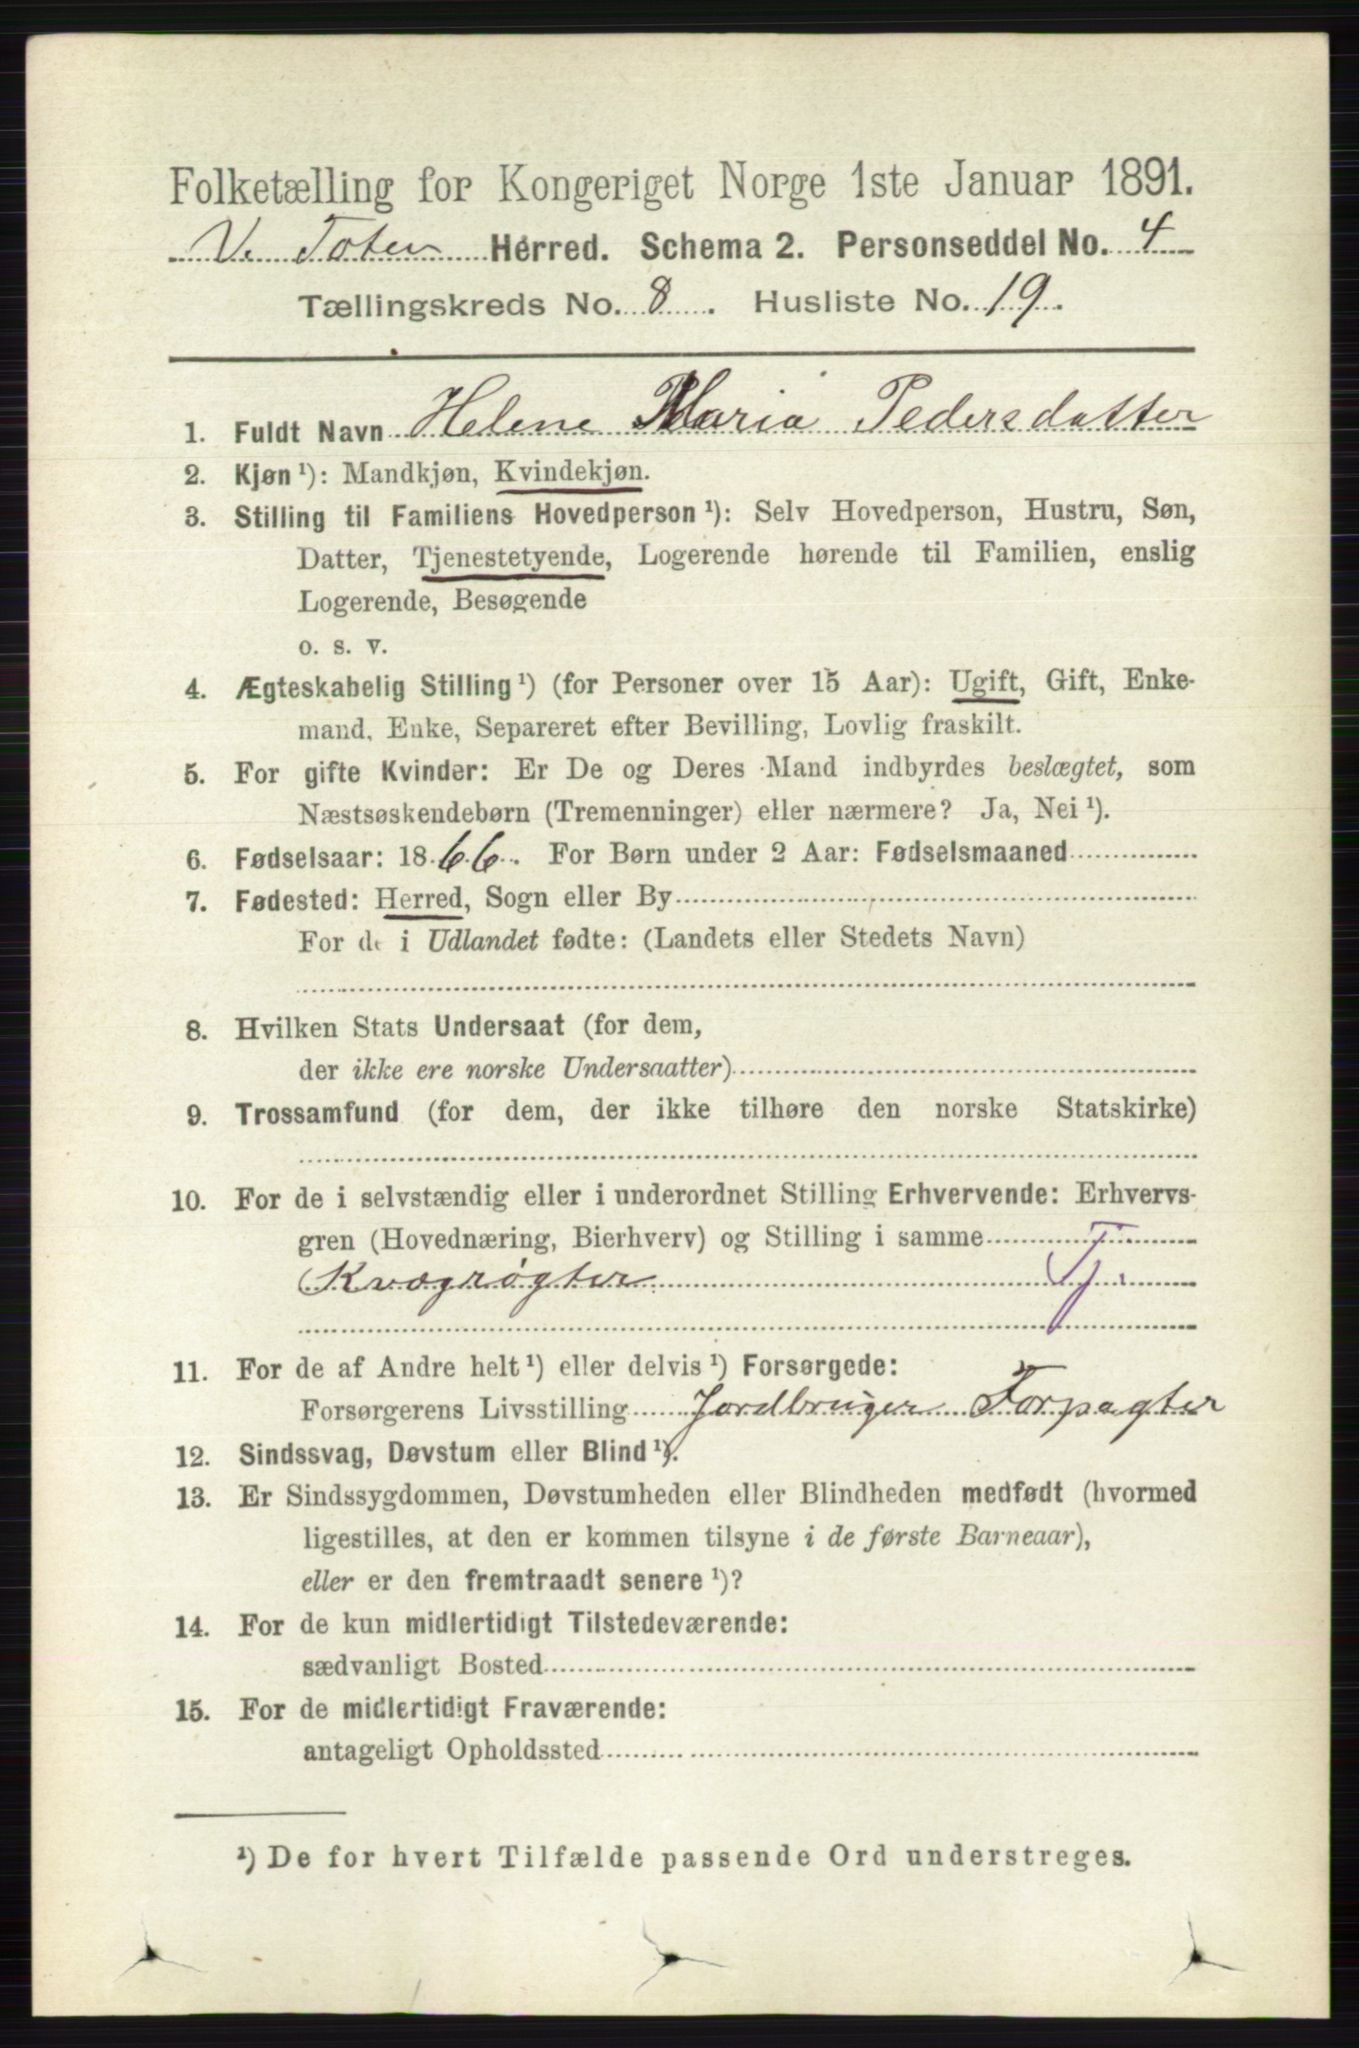 Folketælling for Kongeriget Norge 1ste Januar 1891.
V. Toten Herred. Schema 2. Personseddel No. 4
Tællingskreds No. 8. Husliste No. 19.
1. Fuldt Navn Helene Maria Pedersdatter
2. Kjøn ¹): Mandkjøn, Kvindekjøn.
3. Stilling til Familiens Hovedperson ¹): Selv Hovedperson, Hustru, Søn,
Datter, Tjenestetyende, Logerende hørende til Familien, enslig
Logerende, Besøgende
o. s. v.
4. Ægteskabelig Stilling ¹) (for Personer over 15 Aar): Ugift, Gift, Enke-
mand, Enke, Separeret efter Bevilling, Lovlig fraskilt.
5. For gifte Kvinder: Er De og Deres Mand indbyrdes beslægtet, som
Næstsøskendebørn (Tremenninger) eller nærmere? Ja, Nei ¹).
6. Fødselsaar: 1866. For Børn under 2 Aar: Fødselsmaaned
7. Fødested: Herred, Sogn eller By
For de i Udlandet fødte: (Landets eller Stedets Navn)
8. Hvilken Stats Undersaat (for dem,
der ikke ere norske Undersaatter)
9. Trossamfund (for dem, der ikke tilhøre den norske Statskirke)
10. For de i selvstændig eller i underordnet Stilling Erhvervende: Erhvervs-
gren (Hovednæring, Bierhverv) og Stilling i samme
Kvægrøgter Tj.
11. For de af Andre helt ¹) eller delvis ¹) Forsørgede:
Forsørgerens Livsstilling Jordbruger Forpagter
12. Sindssvag, Døvstum eller Blind ¹).
13. Er Sindssygdommen, Døvstumheden eller Blindheden medfødt (hvormed
ligestilles, at den er kommen tilsyne i de første Barneaar),
eller er den fremtraadt senere ¹)?
14. For de kun midlertidigt Tilstedeværende:
sædvanligt Bosted
15. For de midlertidigt Fraværende:
antageligt Opholdssted
¹) De for hvert Tilfælde passende Ord understreges.